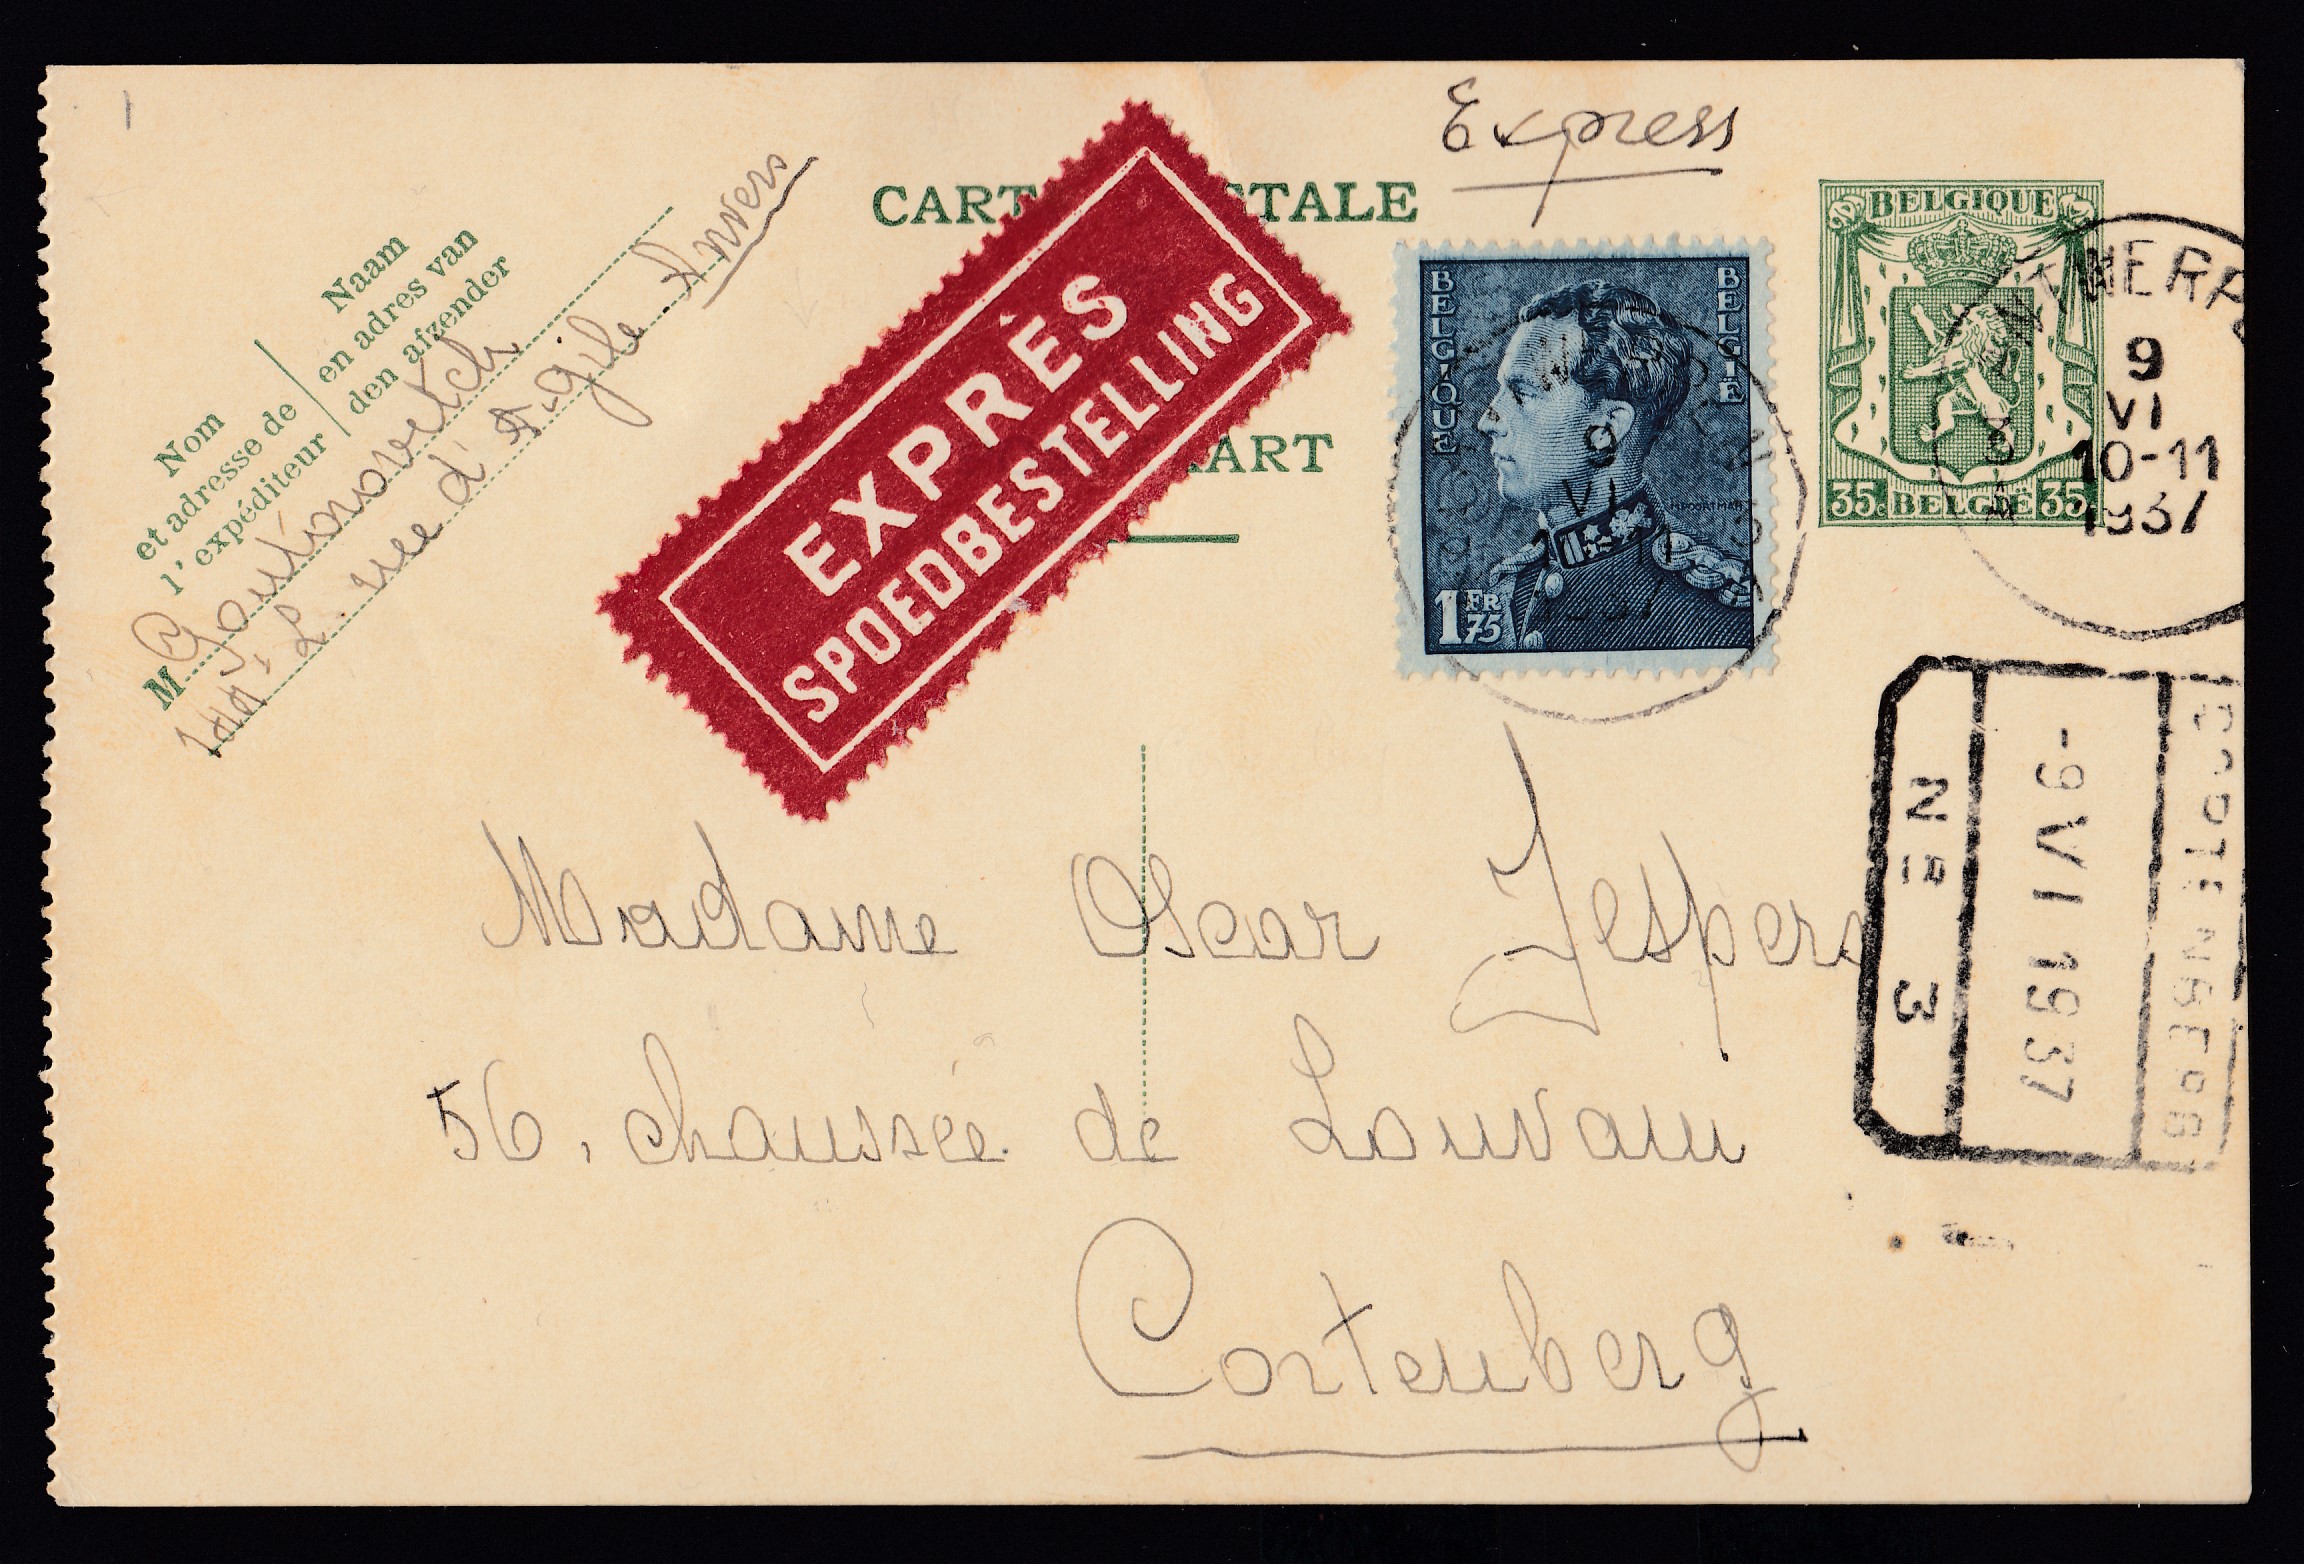 Express
CARTE POSTALE
KAART
EXPRÈS
SPOEDBESTELLING
Nom
et adresse de
l'expéditeur
Naam
en adres van
den afzender
M
rue d' Argile Anvers
BELGIQUE
BELGIË
1 FR 75
BELGIQUE
35c BELGIË 35c
ANTWERPEN
9
VI
10-11
1937
9
VI
Nº 3
-9 VI 1937
CORTENBERG
Madame Oscar Jespers
56, chaussée de Louvain
Cortenberg